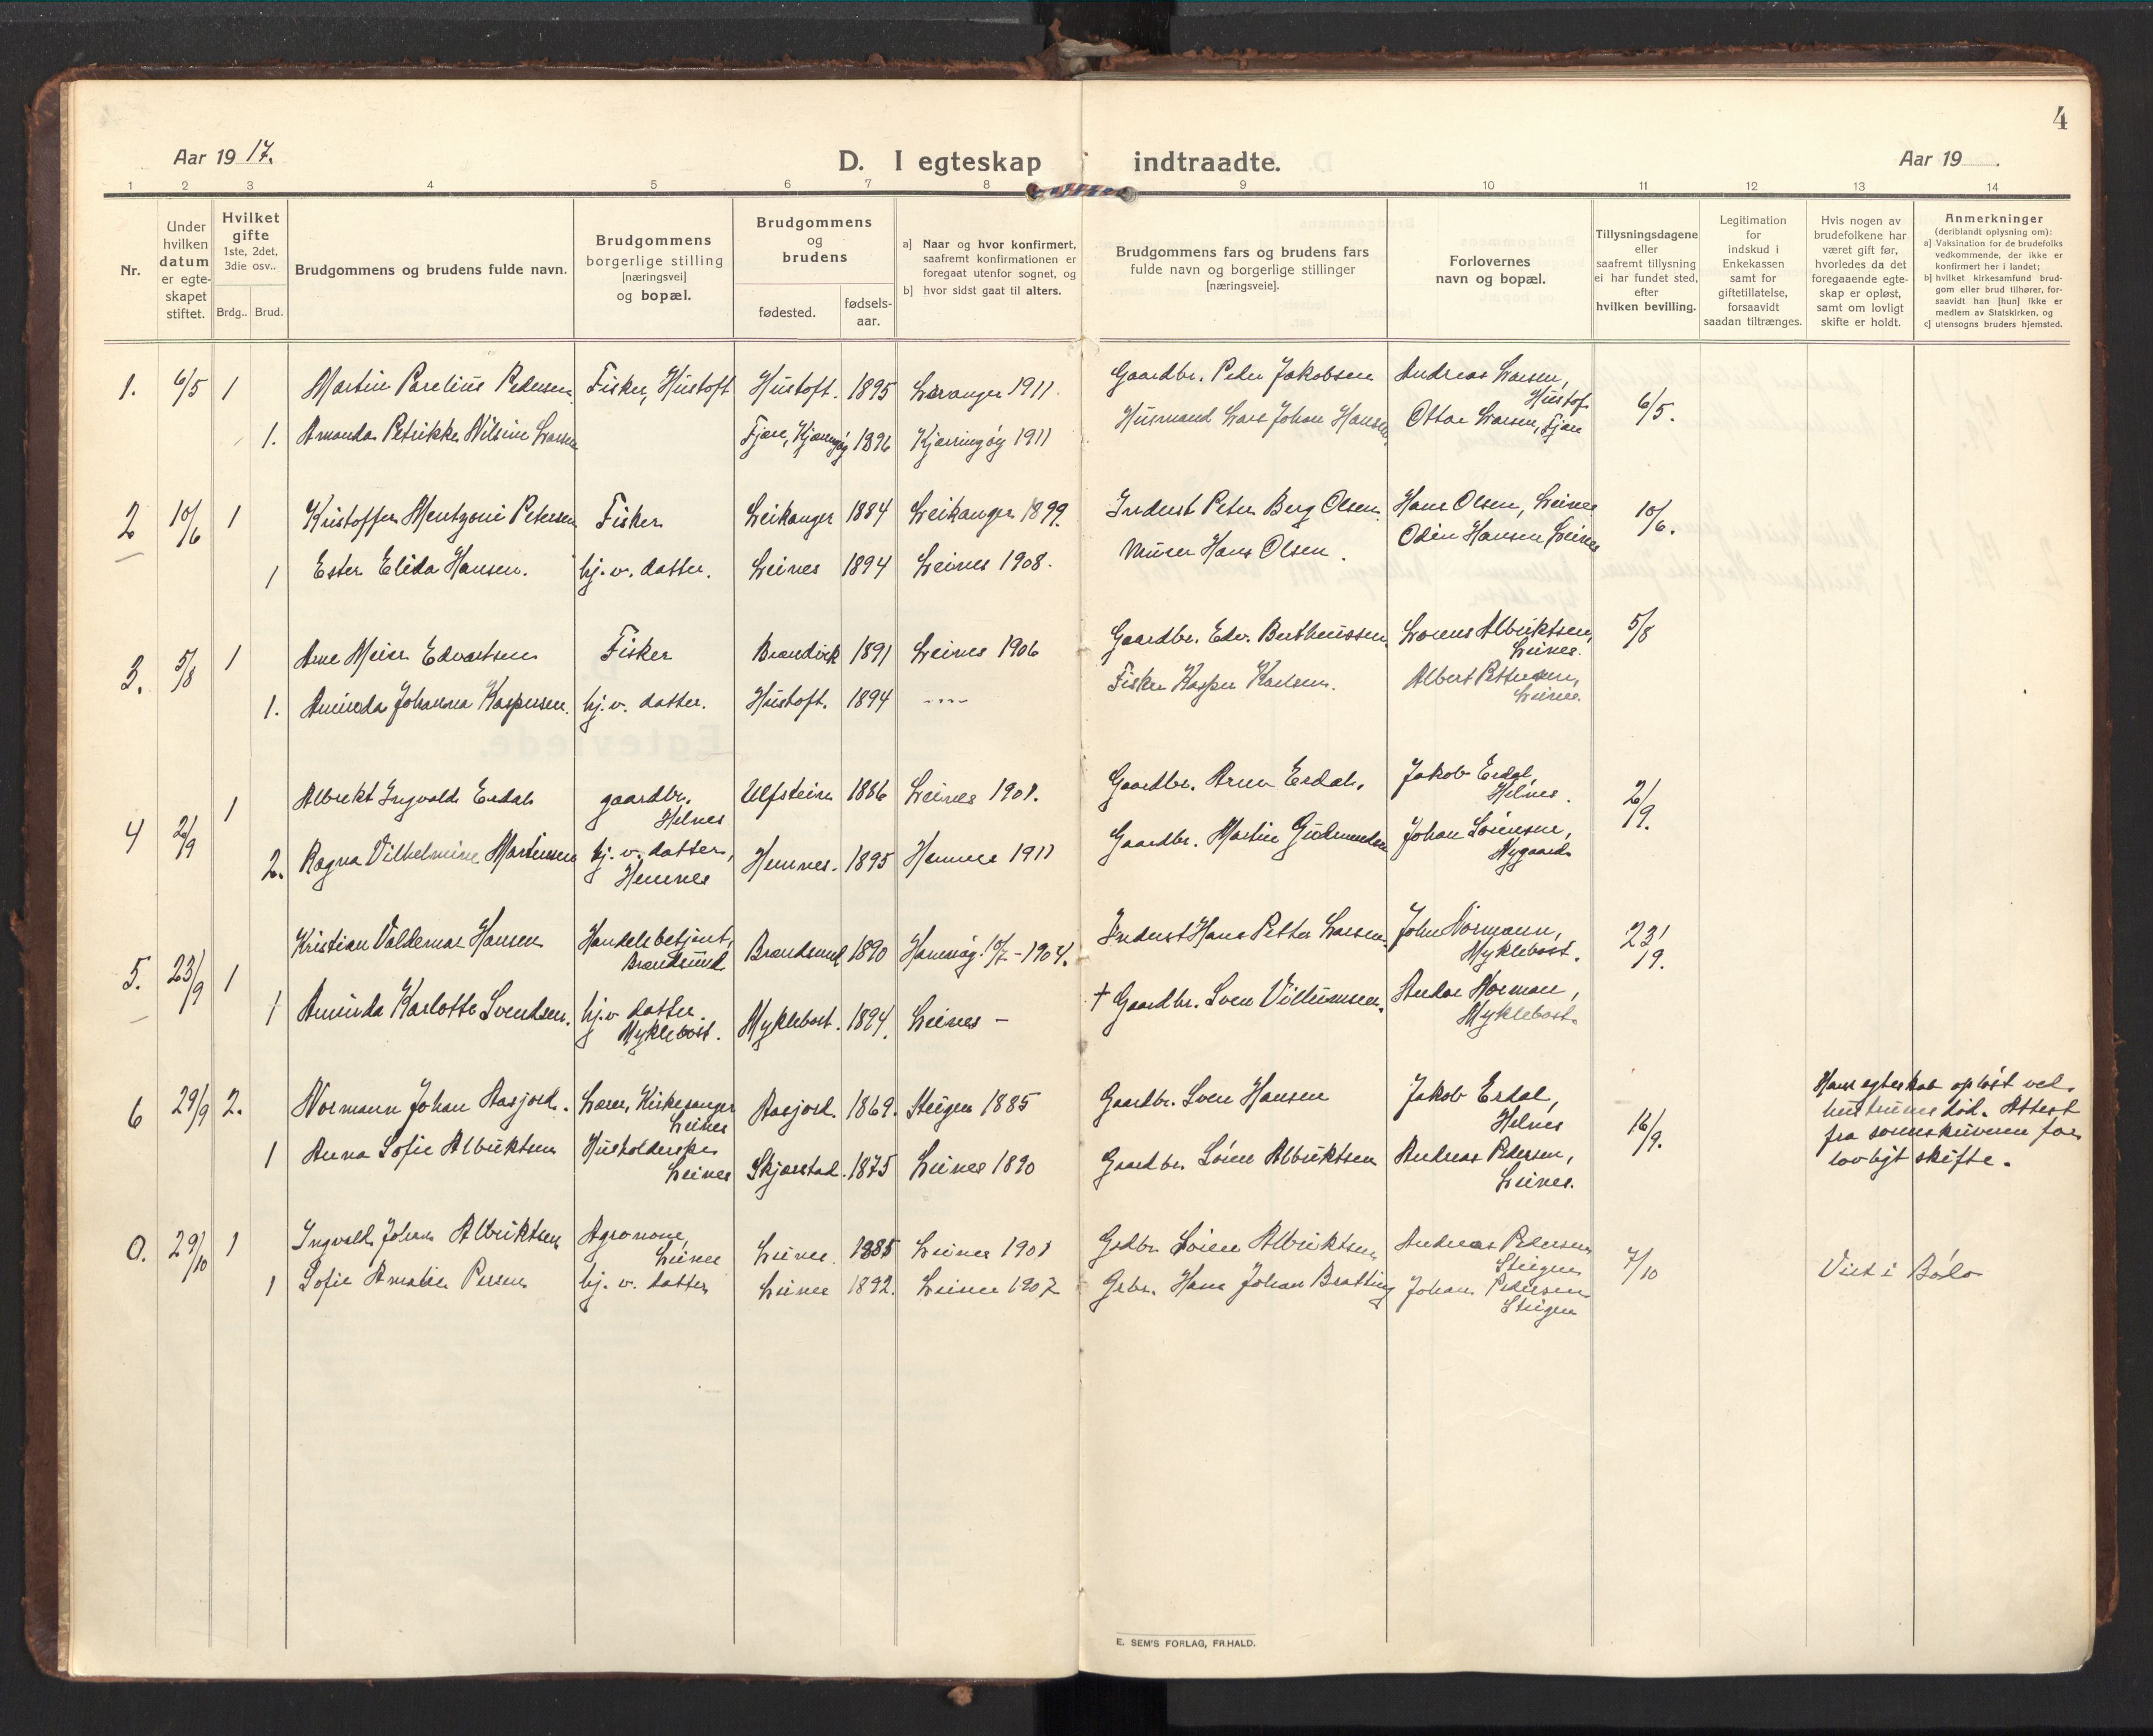 4
Aar 19 17.
D. I egteskap indtraadte.
Aar 19 .
1 2 3 4 5 6 7 8 9 10 11 12 13 14
Nr.
Under hvilken datum er egte-skapet stiftet.
Hvilket gifte 1ste, 2det, 3die osv..
Brdg.. Brud.
Brudgommens og brudens fulde navn.
Brudgommens borgerlige stilling [næringsvei] og bopæl.
Brudgommens og brudens
fødested. fødsels-aar.
a] Naar og hvor konfirmert, saafremt konfirmationen er foregaat utenfor sognet, og
b] hvor sidst gaat til alters.
Brudgommens fars og brudens fars fulde navn og borgerlige stillinger [næringsveie].
Forlovernes navn og bopæl.
Tillysningsdagene eller saafremt tillysning ei har fundet sted, efter hvilken bevilling.
Legitimation for indskud i Enkekassen samt for giftetillatelse, forsaavidt saadan tiltrænges.
Hvis nogen av brudefolkene har været gift før, hvorledes da det foregaaende egte-skap er opløst, samt om lovligt skifte er holdt.
Anmerkninger (deriblandt oplysning om):
a] Vaksination for de brudefolks vedkommende, der ikke er konfirmert her i landet;
b] hvilket kirkesamfund brud-gom eller brud tilhører, for-saavidt han [hun] ikke er medlem av Statskirken, og
c] utensogns bruders hjemsted.
1. 6/5 1 Martin Parelius Pedersen Fisker, Hustoft Hustoft. 1895 Leranger 1911. Gaardbr. Peder Jakobsen Andreas Larsen, Hustof. 6/5.
1. Amanda Petrikke Nilsine Larsen Fjære, Kjærringøy 1896 Kjærringøy 1911 Husmand Lars Johan Hansen Ottar Larsen, Fjære
2 10/6 1 Kristoffer Mentzoni Petersen Fisker Leikanger 1884 Leikanger 1899. Inderst Peter Berg Olsen. Hans Olsen, Leines 10/6.
1 Ester Elida Hansen. hj. v. datter. Leines 1894 Leines 1908. Murer Hans Olsen. Odin Hansen Leines
3. 5/8 1 Arne Meier Edvartsen Fisker Brandvik 1891 Leines 1906 Gaardbr. Edv. Bertheussen Lorens Albriktsen, Leines. 5/8
1. Aminda Johanna Kaspersen. hj. v. datter. Hustoft. 1894 ---- Fisker Kasper Karlsen. Albert Pettersen, Leines.
4 2/9 1 Albrekt Ingvald Erdal gaardbr. Helnes Ulfstein 1886 Leines 1901. Gaardbr. Arne Erdal. Jakob Erdal, Helnes. 2/9.
2. Ragna Vilhelmine Martinsen hj. v. datter, Hemnes Hemnes. 1895 Hemnes 1911 Gaardbr. Martin Gudmundsen Johan Sörensen, Nygaard
5. 23/9 1 Kristian Valdemar Hansen Handelsbetjent, Brandsund Brandsund 1890 Hamarøy 10/7 - 1904. Inderst Hans Petter Larsen. John Normann, Myklebost. 23/9.
1 Aminda Karlotte Svendsen. hj. v datter. Myklebost. Myklebost. 1894. Leines - + Gaardbr. Sven Villumsen. Andor Norman, Myklebost.
6 29/9 2. Normann Johan Aasjord. Lærer, Kirkesanger Leines Aasjord. 1869. Steigen 1885 Gaardbr. Sven Hansen Jakob Erdal, Helnes 16/9. Hans egteskab opløst ved hustruens död. Attest fra sorenskriveren for lovligt skifte.
1 Anna Sofie Albriktsen Husholderske Leines Skjærstad. 1875 Leines 1890 Gaardbr. Sören Albriktsen Andreas Pedersen, Leines.
0. 29/10 1 Ingvald Johan Albriktsen Agronom, Leines Leines. 1885 Leines 1901 Grdbr. Sören Albriktsen Andreas Pedersen Steigen 7/10 Viet i Bodö
1 Sofie Amalie Persen hj. v. datter Leines 1892. Leines 1907 Grbr. Hans Johan Bratting Johan Pedersen Steigen
E. SEM'S FORLAG, FR.HALD.